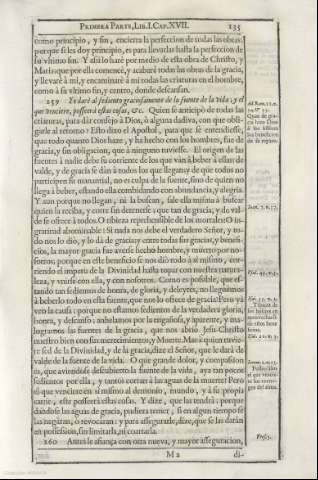 PRIMERA PARTE, LIB. I. CAP. XVII. 135
como principio, y fin, encierra la perfeccion de todas las obras:
porque si les doy principio, es para llevarlas hasta la perfeccion de
su vltimo fin. Y assi lo haré por medio de esta obra de Christo, y
Maria que por ella comencé, y acabaré todas las obras de la gracia,
y llevaré à mi, y encaminaré à mi todas las criaturas en el hombre,
como à su vltimo fin, y centro, donde descansan.
259 Yo daré al sediento graciosamente de la fuente de la vida, y el
que venciere, posseerá estas cosas, &c. Quien se anticipò de todas las
criaturas, para dàr consejo à Dios, ò alguna dadiva, con que obli-
garle al retorno? Esto dixo el Apostol, para que se entendiesse,
que todo quanto Dios haze, y ha hecho con los hombres, fue de
gracia, y sin obligacion, que à ninguno tuviesse. El origen de las
fuentes à nadie debe su corriente de los que vàn à beber à ellas: de
valde, y de gracia se dàn à todos los que llegan; y de que todos no
participen su manantial, no es culpa de la fuente, sino de quien no
llega à beber, estando ella combidando con abundancia, y alegria.
Y aun porque no llegan, ni la buscan, sale ella misma à buscar
quien la reciba, y corre sin detenerse: que tan de gracia, y de val-
de se ofrece à todos. O tibieza reprehensible de los mortales! O in-
gratitud abominable! Si nada nos debe el verdadero Señor, y to-
do nos lo diò, y lo dà de gracia; y entre todas sus gracias, y benefi-
cios, la mayor gracia fue averse hecho hombre, y muerto por no-
sotros; porque en este beneficio se nos diò todo à sì mismo, cor-
riendo el impetu de la Divinidad hasta topar con nuestra natura-
leza, y vnirse con ella, y con nosotros. Como es possible, que es-
tando tan sedientos de honra, de gloria, y deleytes, no lleguemos
à beberlo todo en esta fuente, que nos lo ofrece de gracia? Pero yà
veo la causa: porque no estamos sedientos de la verdadera gloria,
honra, y descanso; anhelamos por la engañosa, y aparente, y ma-
logramos las fuentes de la gracia, que nos abriò Jesu-Christo
nuestro bien con sus merecimientos, y Muerte. Mas à quien tuvie-
re sed de la Divinidad, y de la gracia, dize el Señor, que le darà de
valde de la fuente de la vida. O que grande dolor, y compassion
es, que aviendose descubierto la fuente de la vida, aya tan pocos
sedientos por ella, y tantos corran à las aguas de la muerte! Pero
el que venciere en sì mismo al demonio, mundo, y à su propia
carne, este posseerá estas cosas. Y dize, que las tendrà: porque
dandose las aguas de gracia, pudiera temer, si en algun tiempo se
las negaran, ò revocaran: y para assegurarle, dize, que se las daràn
en possession, sin limitarla, ni coartarla.
260 Antes le afiança con otra nueva, y mayor asseguracion,
M 2 di-